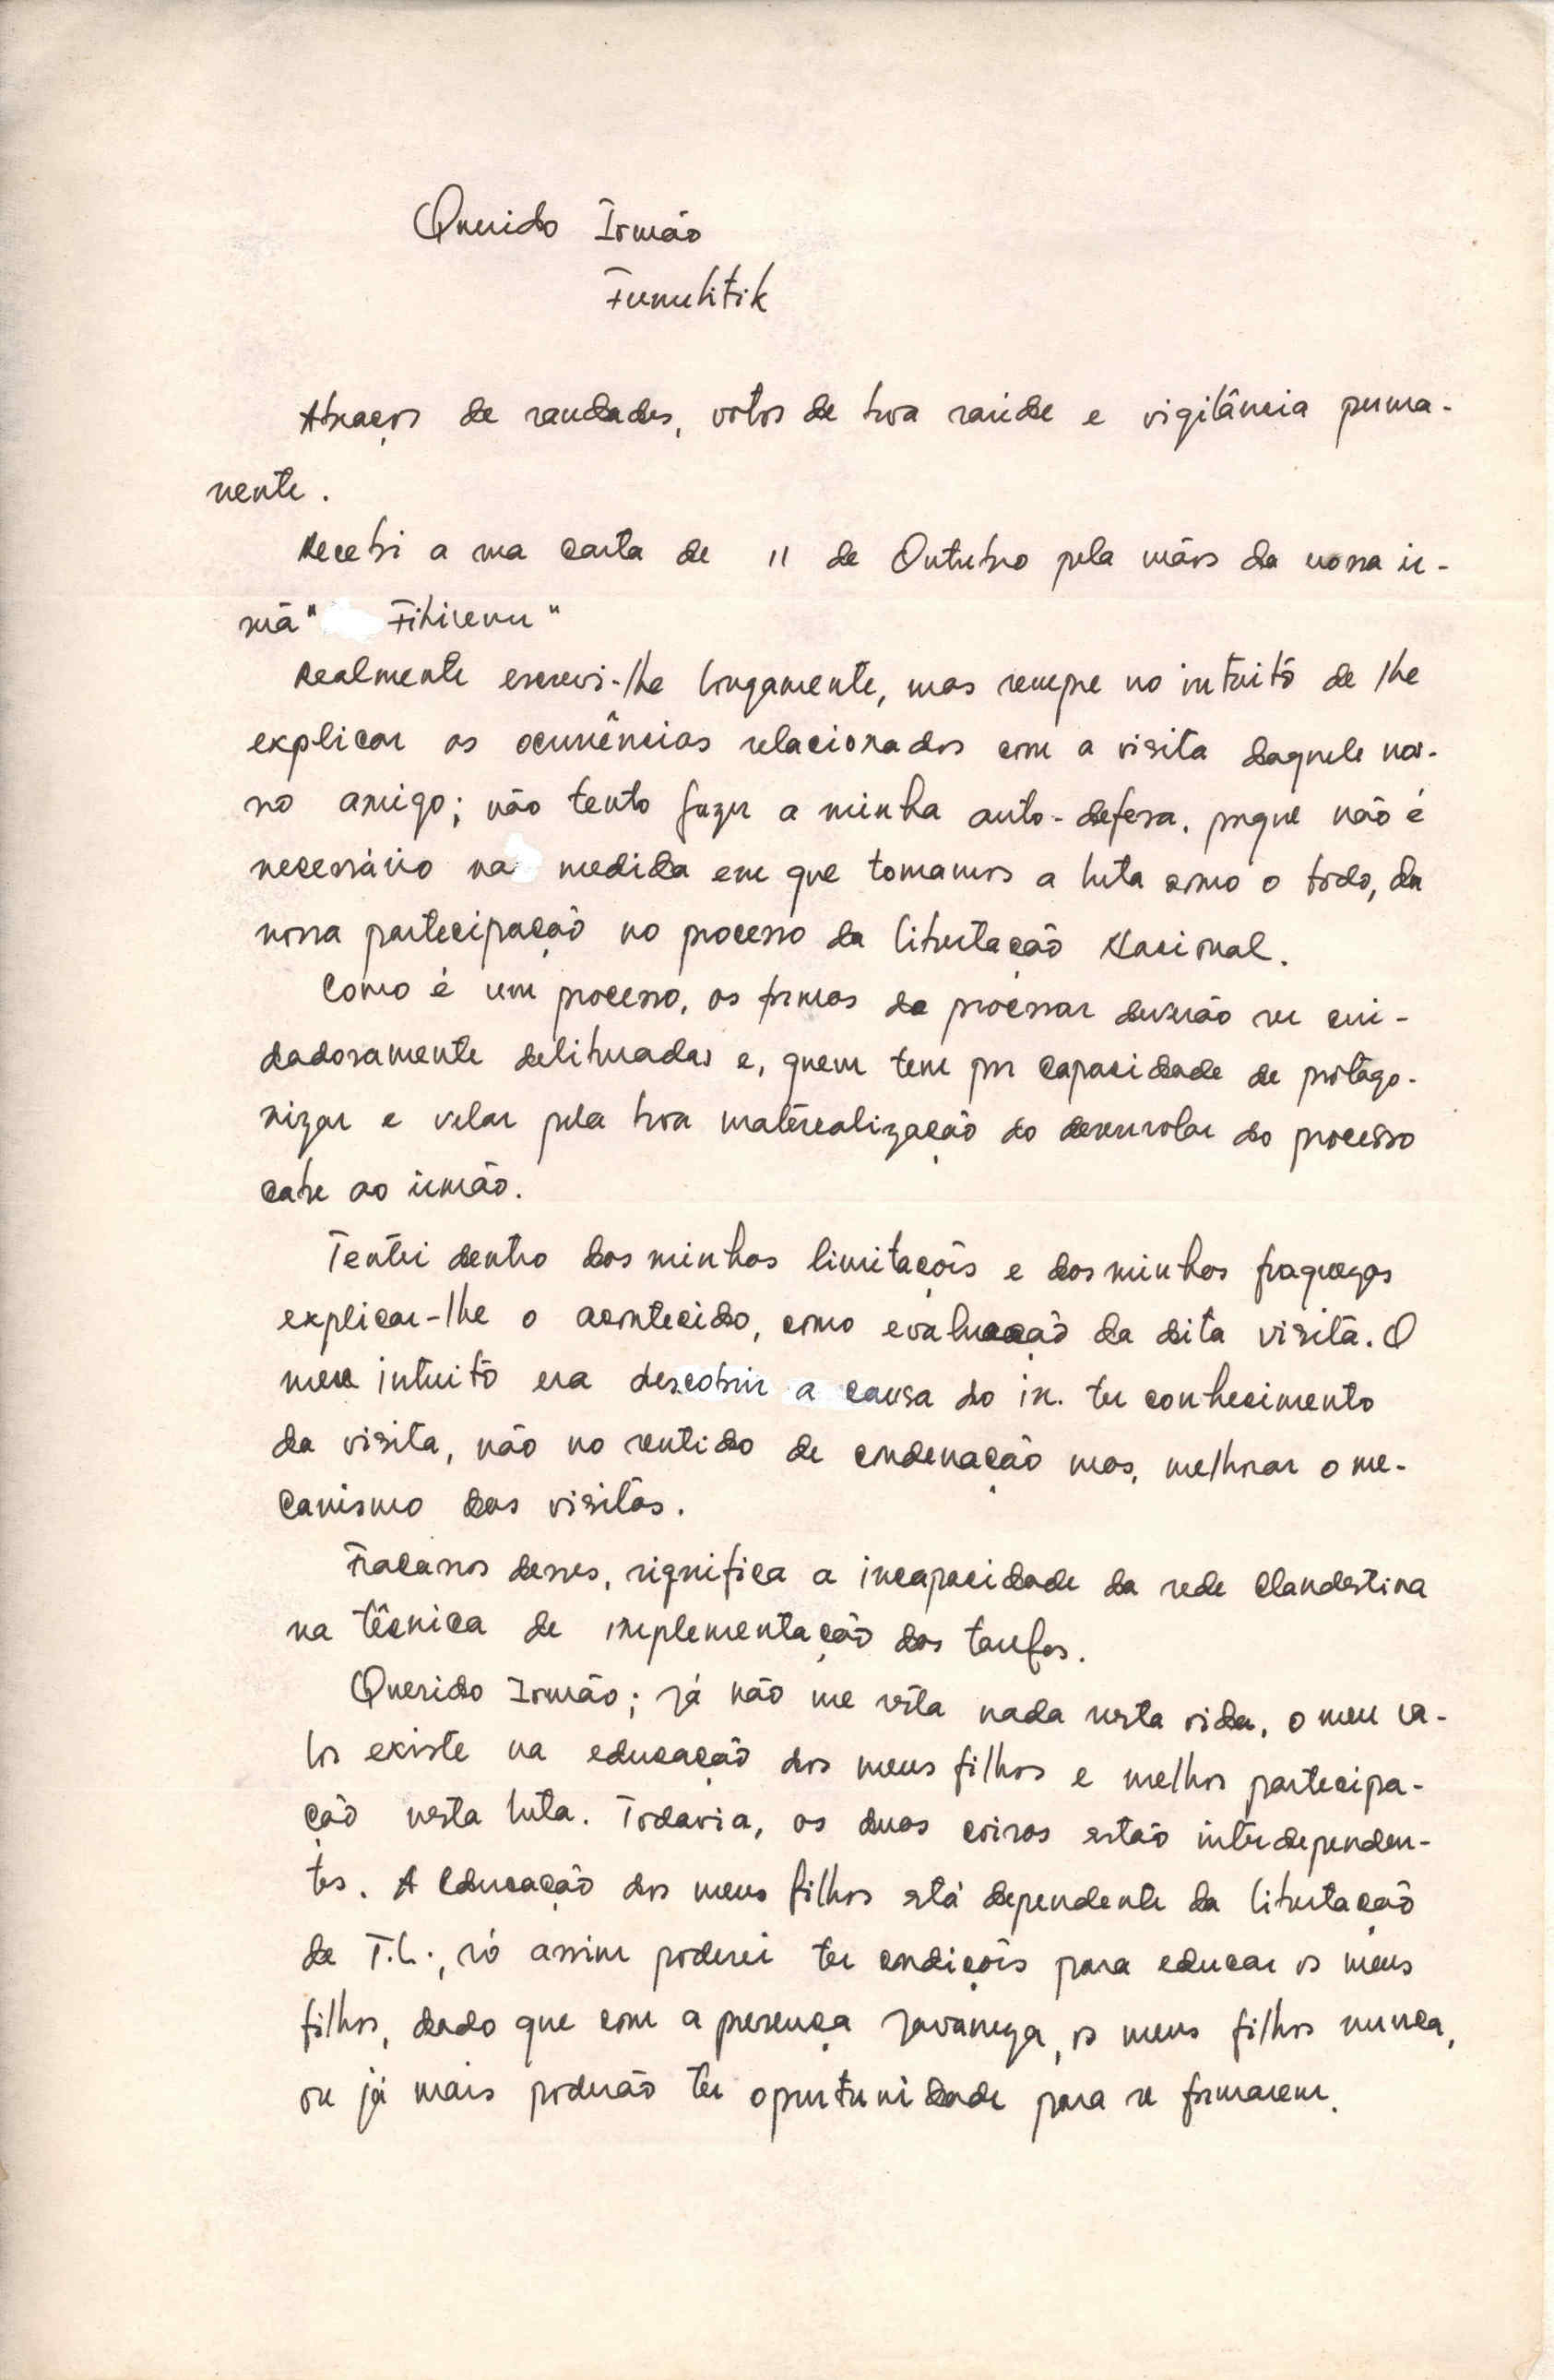 Querido Irmão
Funuhitik
Abraços de saudades, votos de boa saúde e vigilância perma-
nente.
Recebi a sua carta de 11 de Outubro pela mãos da nossa ir-
mã "Fihirenu"
Realmente escrevi-lhe longamente, mas sempre no intuito de lhe
explicar as ocurrências relacionados com a visita daquele nos-
so amigo; não tento fazer a minha auto-defesa, porque não é
necessário na medida em que tomamos a luta como o todo, da
nossa partecipação no processo da libertação Nacional.
Como é um processo, as formas de processar deverão ser cui-
dadosamente deliberadas e, quem tem por capacidade de protago-
nizar e velar pela boa materealização do desenrolar do processo
cabe ao irmão.
Tentei dentro das minhas limitações e das minhas fraquezas
explicar-lhe o acontecido, como evaluação da dita visita. O
meu intuito era descobrir a causa do in. ter conhecimento
da visita, não no sentido de condenação mas, melhorar o me-
canismo das visitas.
Fracassos desses, significa a incapacidade da rede clandestina
na técnica de implementação das tarefas.
Querido Irmão; já não me resta nada nesta vida, o meu va-
lor existe na educação dos meus filhos e melhor partecipa-
ção nesta luta. Todavia, as duas coisas estão interdependen-
tes. A Educação dos meus filhos está dependente da libertação
de T.L., só assim poderei ter condições para educar os meus
filhos, dado que com a presença javaneza, os meus filhos nunca,
ou já mais poderão ter oportunidade para se formarem.